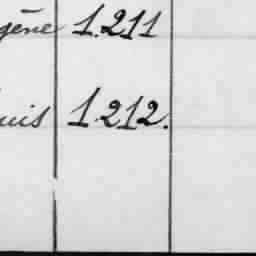 gène 1.211
uis 1.212.